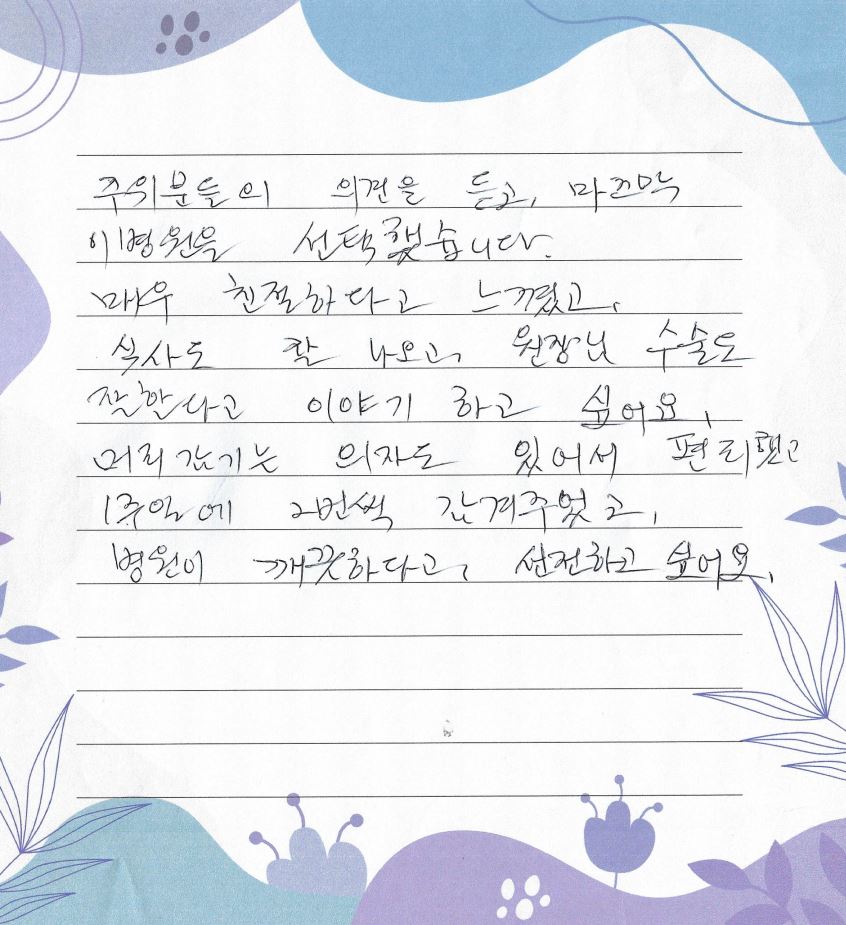 주위분들의 의견을 듣고, 마즈막
이병원을 선택했습니다.
매우 친절하다고 느꼈고,
식사도 잘 나오고, 원장님 수술도
잘한다고 이야기 하고 싶어요,
머리감기는 의자도 있어서 편리했고
1주일에 2번씩 감겨주웠고,
병원이 깨끗하다고, 선전하고 싶어요,